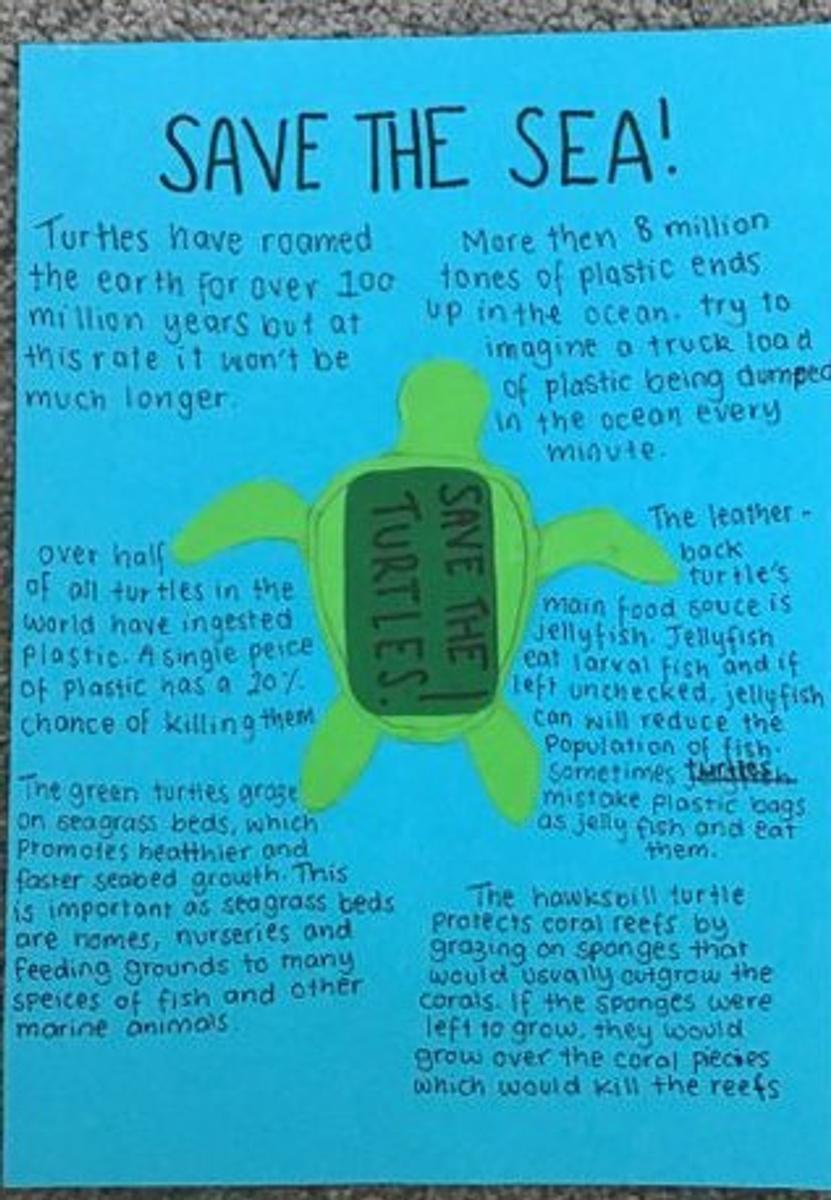 SAVE THE SEA!
Turtles have roamed
the earth for over 100
million years but at
this rate it won't be
much longer.
More then 8 million
tones of plastic ends
up in the ocean. try to
imagine a truck load
of plastic being dumped
in the ocean every
minute.
SAVE THE
TURTLES!
over half
of all turtles in the
world have ingested
Plastic. A single peice
of plastic has a 20%
chance of killing them
The leather-
back
turtle's
main food souce is
Jellyfish. Jellyfish
eat larval fish and if
left unchecked, jellyfish
can will reduce the
Population of fish.
Sometimes turtles
mistake plastic bags
as jelly fish and eat
them.
The green turtles graze
on seagrass beds, which
Promotes healthier and
faster seabed growth. This
is important as seagrass beds
are homes, nurseries and
feeding grounds to many
speices of fish and other
marine animals.
The hawksbill turtle
Protects coral reefs by
grazing on sponges that
would usually outgrow the
corals. If the sponges were
left to grow, they would
grow over the coral pecies
which would kill the reefs